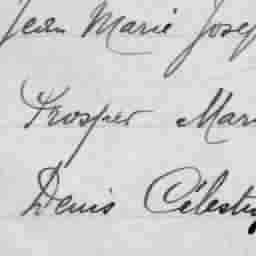 Jean Marie Josep
Prosper Mari
Denis Célestin